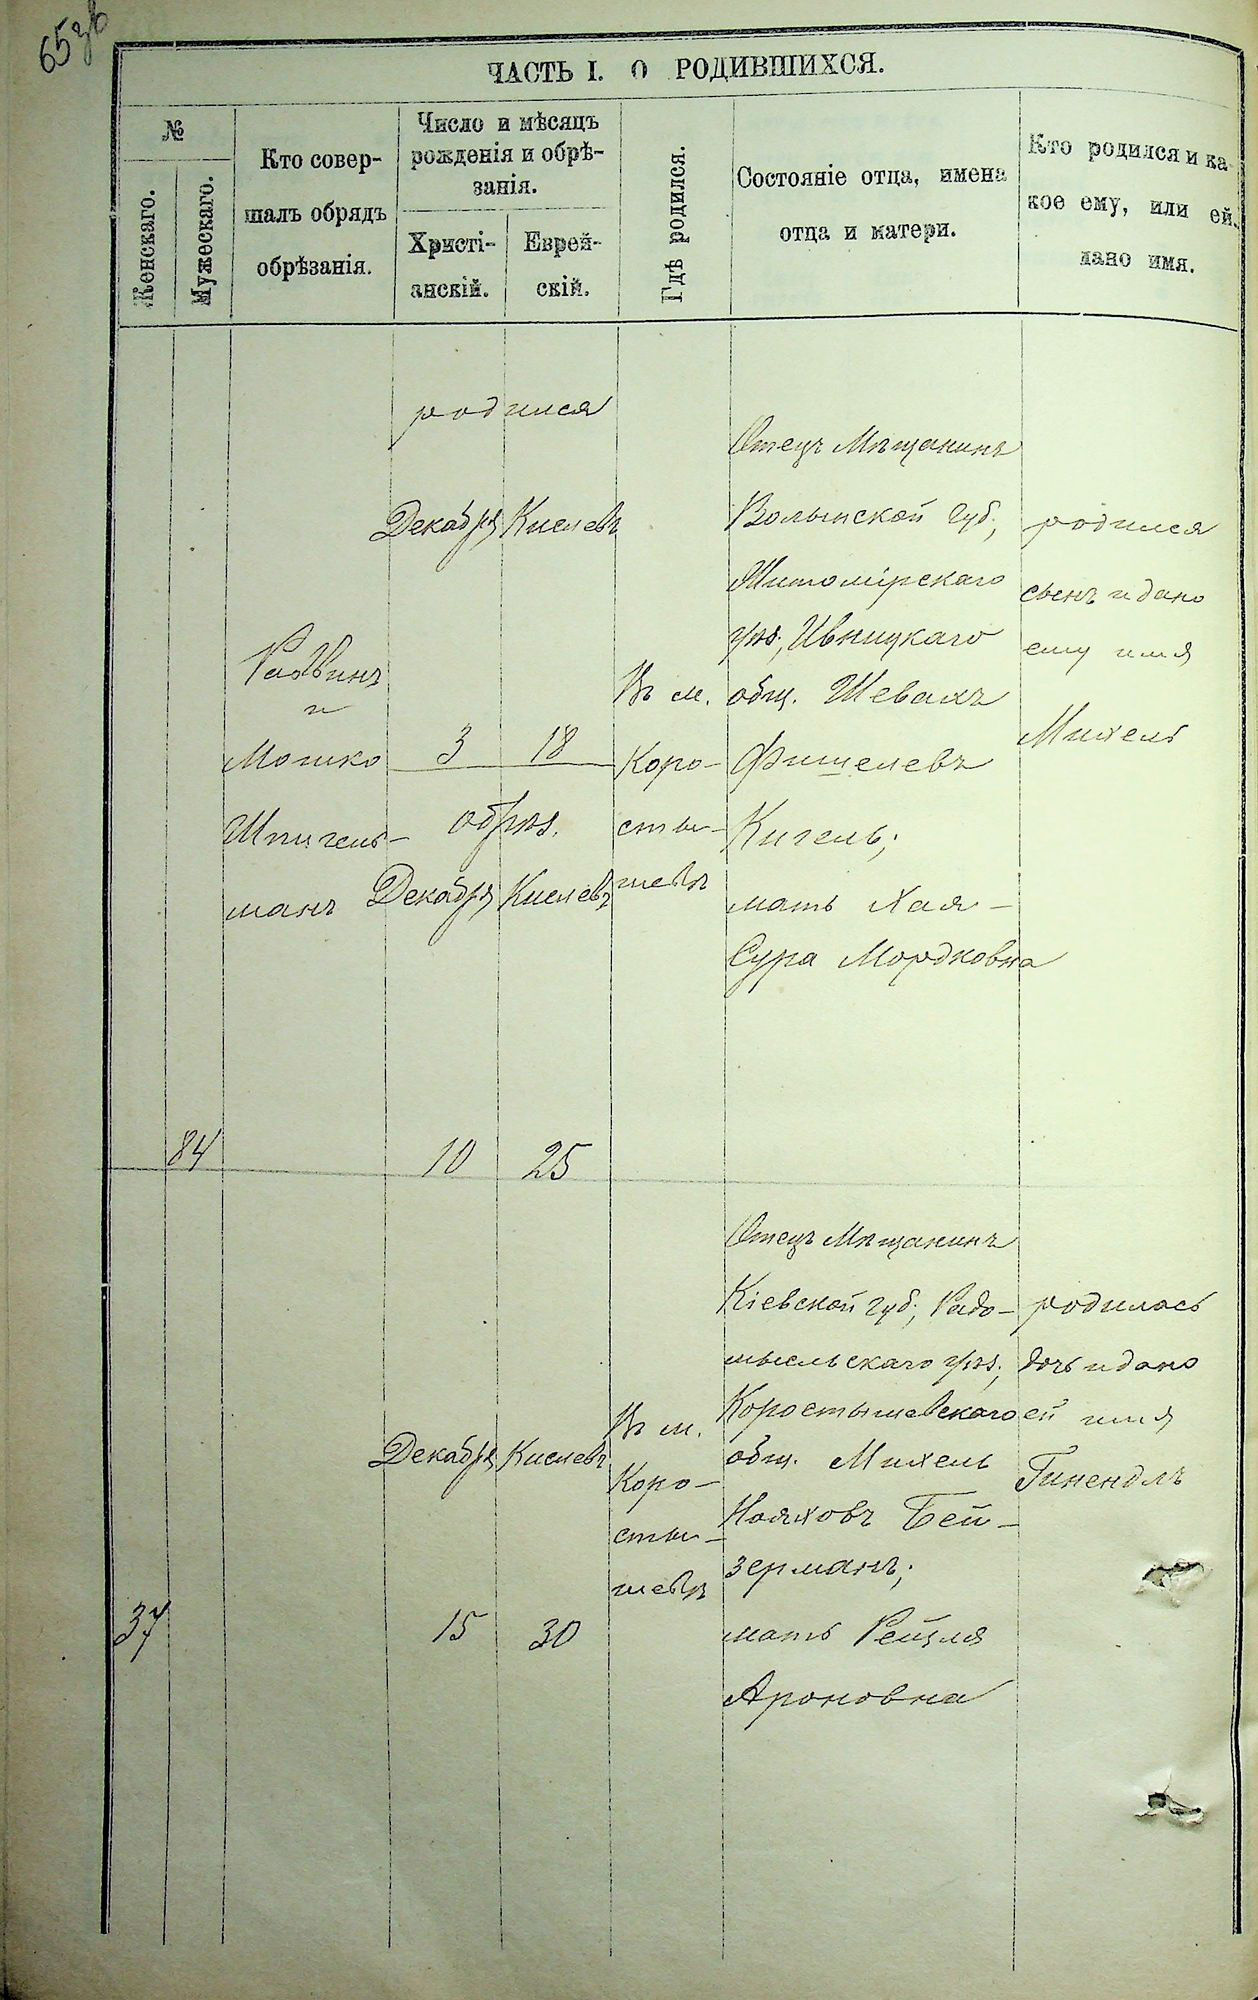 65 зв
ЧАСТЬ I. О РОДИВШИХСЯ.
№
Женскаго.
Мужескаго.
Кто совер-
шалъ обрядъ
обрѣзанія.
Число и мѣсяцъ
рожденія и обрѣ-
занія.
Христі-
анскій.
Еврей-
скій.
Гдѣ родился.
Состояніе отца, имена
отца и матери.
Кто родился и ка-
кое ему, или ей
дано имя.
84
Раввинъ
и
Мошко
Шпигель-
манъ
родился
Декабря Кислевъ
3 18
обрѣз.
Декабря Кислевъ
10 25
Въ м.
Коро-
сты-
шевѣ
Отецъ Мѣщанинъ
Волынской губ.,
Житомірскаго
уѣз., Ивницкаго
общ. Шевахъ
Фишелевъ
Кигель;
мать Хая-
Сура Мордковна
родился
сынъ и дано
ему имя
Михель
37
Декабря Кислевъ
15 30
Въ м.
Коро-
сты-
шевѣ
Отецъ Мѣщанинъ
Кіевской губ., Радо-
мысльскаго уѣз.,
Коростышевскаго
общ. Михель
Нояховъ Бей-
зерманъ;
мать Рейзля
Ароновна
родилась
дочь и дано
ей имя
Гинендлъ